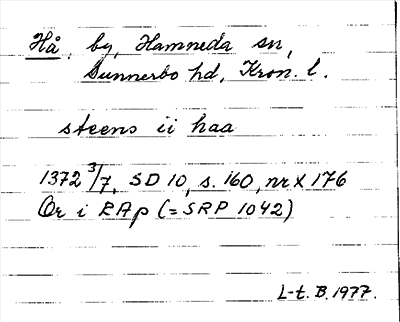 Hå, by, Hamneda sn,
Sunnerbo hd, Kron. l.
steens ii haa
1372 3/7, SD 10, s. 160, nr X 176
Or i RAp (=SRP 1042)
L-t. B. 1977.